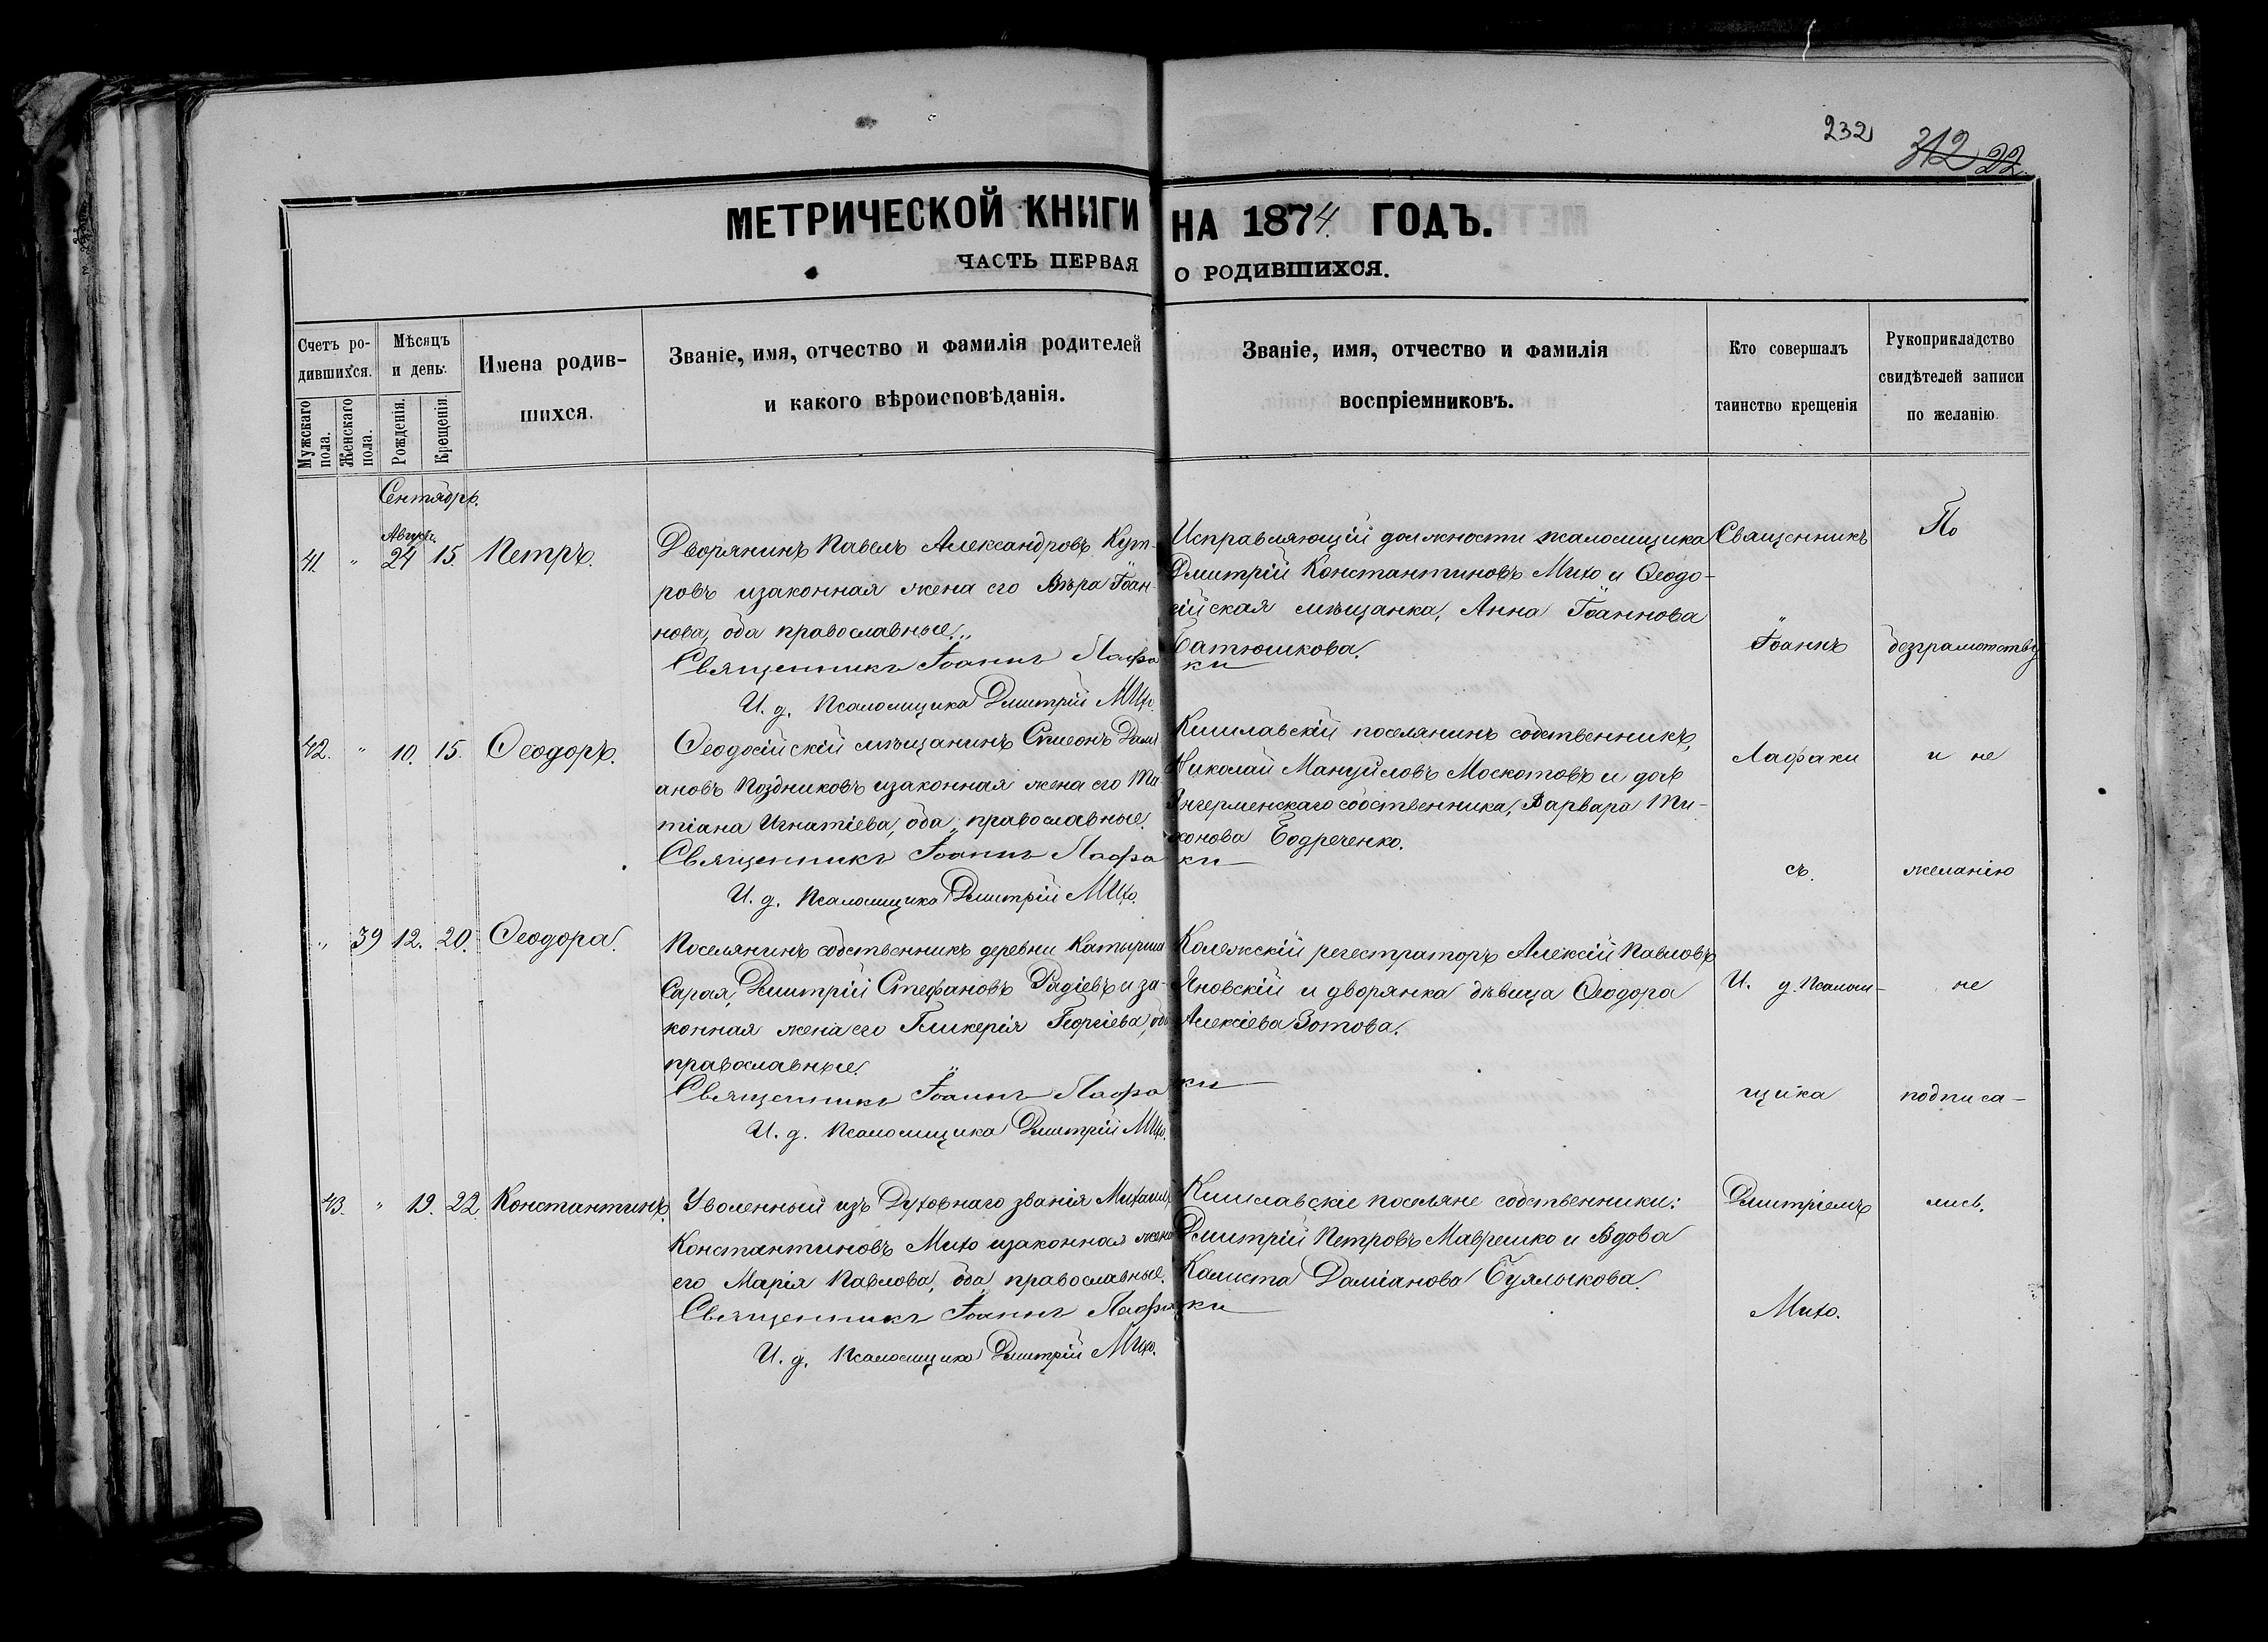 232
312 22.
МЕТРИЧЕСКОЙ КНИГИ НА 1874 ГОДЪ.
ЧАСТЬ ПЕРВАЯ О РОДИВШИХСЯ.
Счетъ ро-
дившихся.
Мужскаго пола.
Женскаго пола.
Мѣсяцъ
и день.
Рожденія.
Крещенія.
Имена родив-
шихся.
Званіе, имя, отчество и фамилія родителей
и какого вѣроисповѣданія.
Званіе, имя, отчество и фамилія
воспріемниковъ.
Кто совершалъ
таинство крещенія
Рукоприкладство
свидѣтелей записи
по желанію.
Сентябрь.
Августъ.
41. " 24 15. Петръ.
Дворянинъ Павелъ Александровъ Куп-
ровъ изаконная жена его Вѣра Іоан-
нова, оба православные.
Священникъ Іоаннъ Лафаки
И. д. Псаломщика Дмитрій Михо.
Исправляющій должности псаломщика
Дмитрій Константиновъ Михо и Ѳеодо-
сійская мѣщанка, Анна Іоаннова
Батюшкова.
42. " 10. 15. Ѳеодоръ.
Ѳеодосійскій мѣщанинъ Симеонъ Дамі
ановъ Поздниковъ изаконная жена его Та
тіана Игнатіева, оба православные.
Священникъ Іоаннъ Лафаки
И. д. Псаломщика Дмитрій Михо.
Кишлавскій поселянинъ собственникъ,
Николай Мануйловъ Москотовъ и дочь
собственника, Варвара Ти-
хонова Бодреченко.
" 39 12. 20. Ѳеодора.
Поселянинъ собственникъ деревни Катырша
Сарая, Дмитрій Стефановъ Радіевъ и за-
конная жена его Гликерія Георгіева, оба
православные.
Священникъ Іоаннъ Лафаки
И. д. Псаломщика Дмитрій Михо.
Колежскій регестраторъ Алексій Павловъ
Яновскій и дворянка дѣвица Ѳеодора
Алексіева Зотова.
43. " 19. 22. Константинъ.
Уволенный изъ Духовнаго званія Михаилъ
Константиновъ Михо изаконная жена
его Марія Павлова, оба православные.
Священникъ Іоаннъ Лафаки
И. д. Псаломщика Дмитрій Михо.
Кишлавскіе поселяне собственники:
Дмитрій Петровъ Маврешко и Вдова
Калиста Даміанова Буялыкова.
Священникъ
Іоаннъ
Лафаки
съ.
И. д. Псалом-
щика
Дмитріемъ
Михо.
По
безграмотству
и не
желанію
не
подписа-
лись.